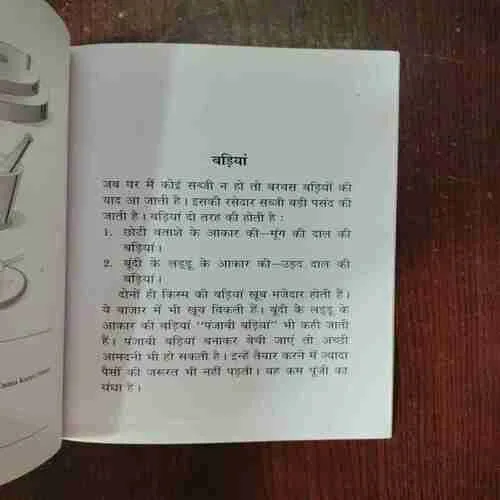 बड़ियां
जब घर में कोई सब्जी न हो तो बरबस बड़ियों की
याद आ जाती है। इसकी रसेदार सब्जी बड़ी पसंद की
जाती है। बड़ियां दो तरह की होती है :
1. छोटी बताशे के आकार की—मूंग की दाल की
बड़ियां।
2. बूंदी के लड्डू के आकार की—उड़द दाल की
बड़ियां।
दोनों ही किस्म की बड़ियां खूब मजेदार होती हैं।
ये बाजार में भी खूब बिकती हैं। बूंदी के लड्डू के
आकार की बड़ियां "पंजाबी बड़ियां" भी कही जाती
हैं। पंजाबी बड़ियां बनाकर बेची जाएं तो अच्छी
आमदनी भी हो सकती है। इन्हें तैयार करने में ज्यादा
पैसों की जरूरत भी नहीं पड़ती। यह कम पूंजी का
धंधा है।